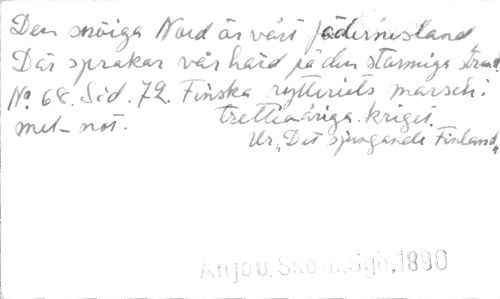 Den snöiga Nord är vårt fädernesland
Där sprakar vår härd på den stormiga strand.
No. 68. Sid. 72. Finska rytteriets marsch i
met-not. trettioåriga kriget.
Ur "Det sjungande Finland"
Anjou, Skolb. Sgb, 1890